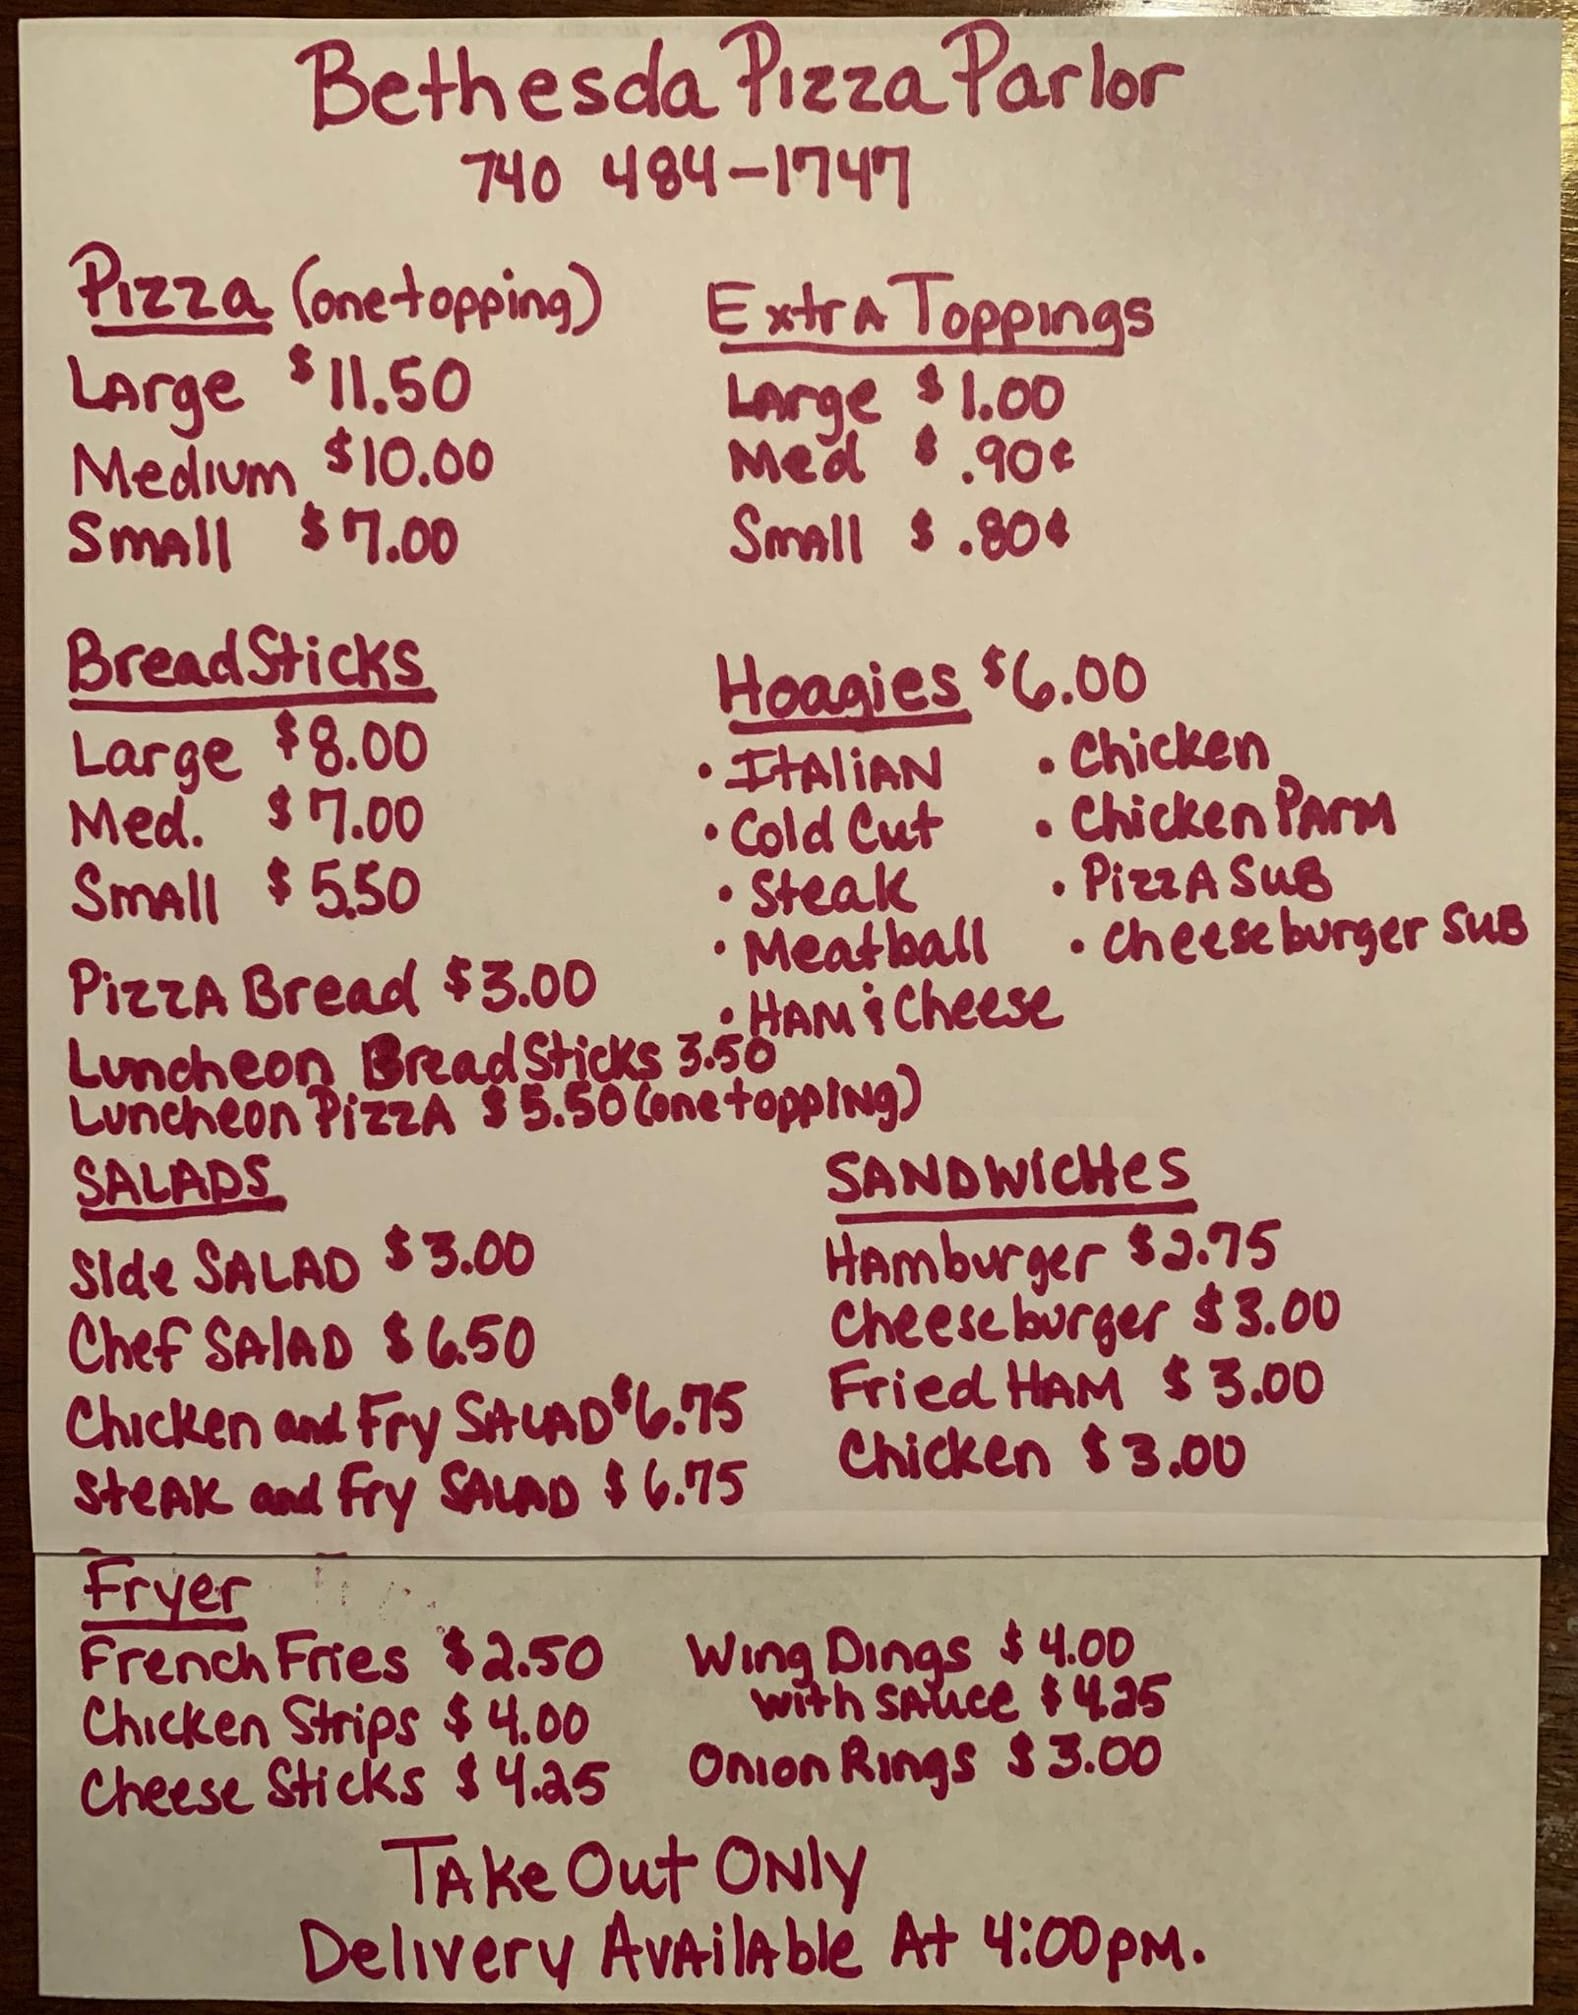 Bethesda Pizza Parlor
740 484-1747
Pizza (one topping)
Large $11.50
Medium $10.00
Small $7.00
Extra Toppings
Large $1.00
Med $.90¢
Small $.80¢
BreadSticks
Large $8.00
Med. $7.00
Small $5.50
Pizza Bread $3.00
Luncheon BreadSticks 3.50
Luncheon Pizza $5.50 (one topping)
Hoagies $6.00
• Italian
• Cold Cut
• Steak
• Meatball
• Ham & Cheese
• Chicken
• Chicken Parm
• Pizza Sub
• Cheeseburger Sub
SALADS
Side SALAD $3.00
Chef SAlAD $6.50
Chicken and Fry SALAD $6.75
Steak and Fry SALAD $6.75
SANDWICHeS
Hamburger $2.75
Cheeseburger $3.00
Fried HAM $3.00
Chicken $3.00
Fryer
French Fries $2.50
Chicken Strips $4.00
Cheese Sticks $4.25
Wing Dings $4.00
with sauce $4.25
Onion Rings $3.00
Take Out Only
Delivery Available At 4:00pm.